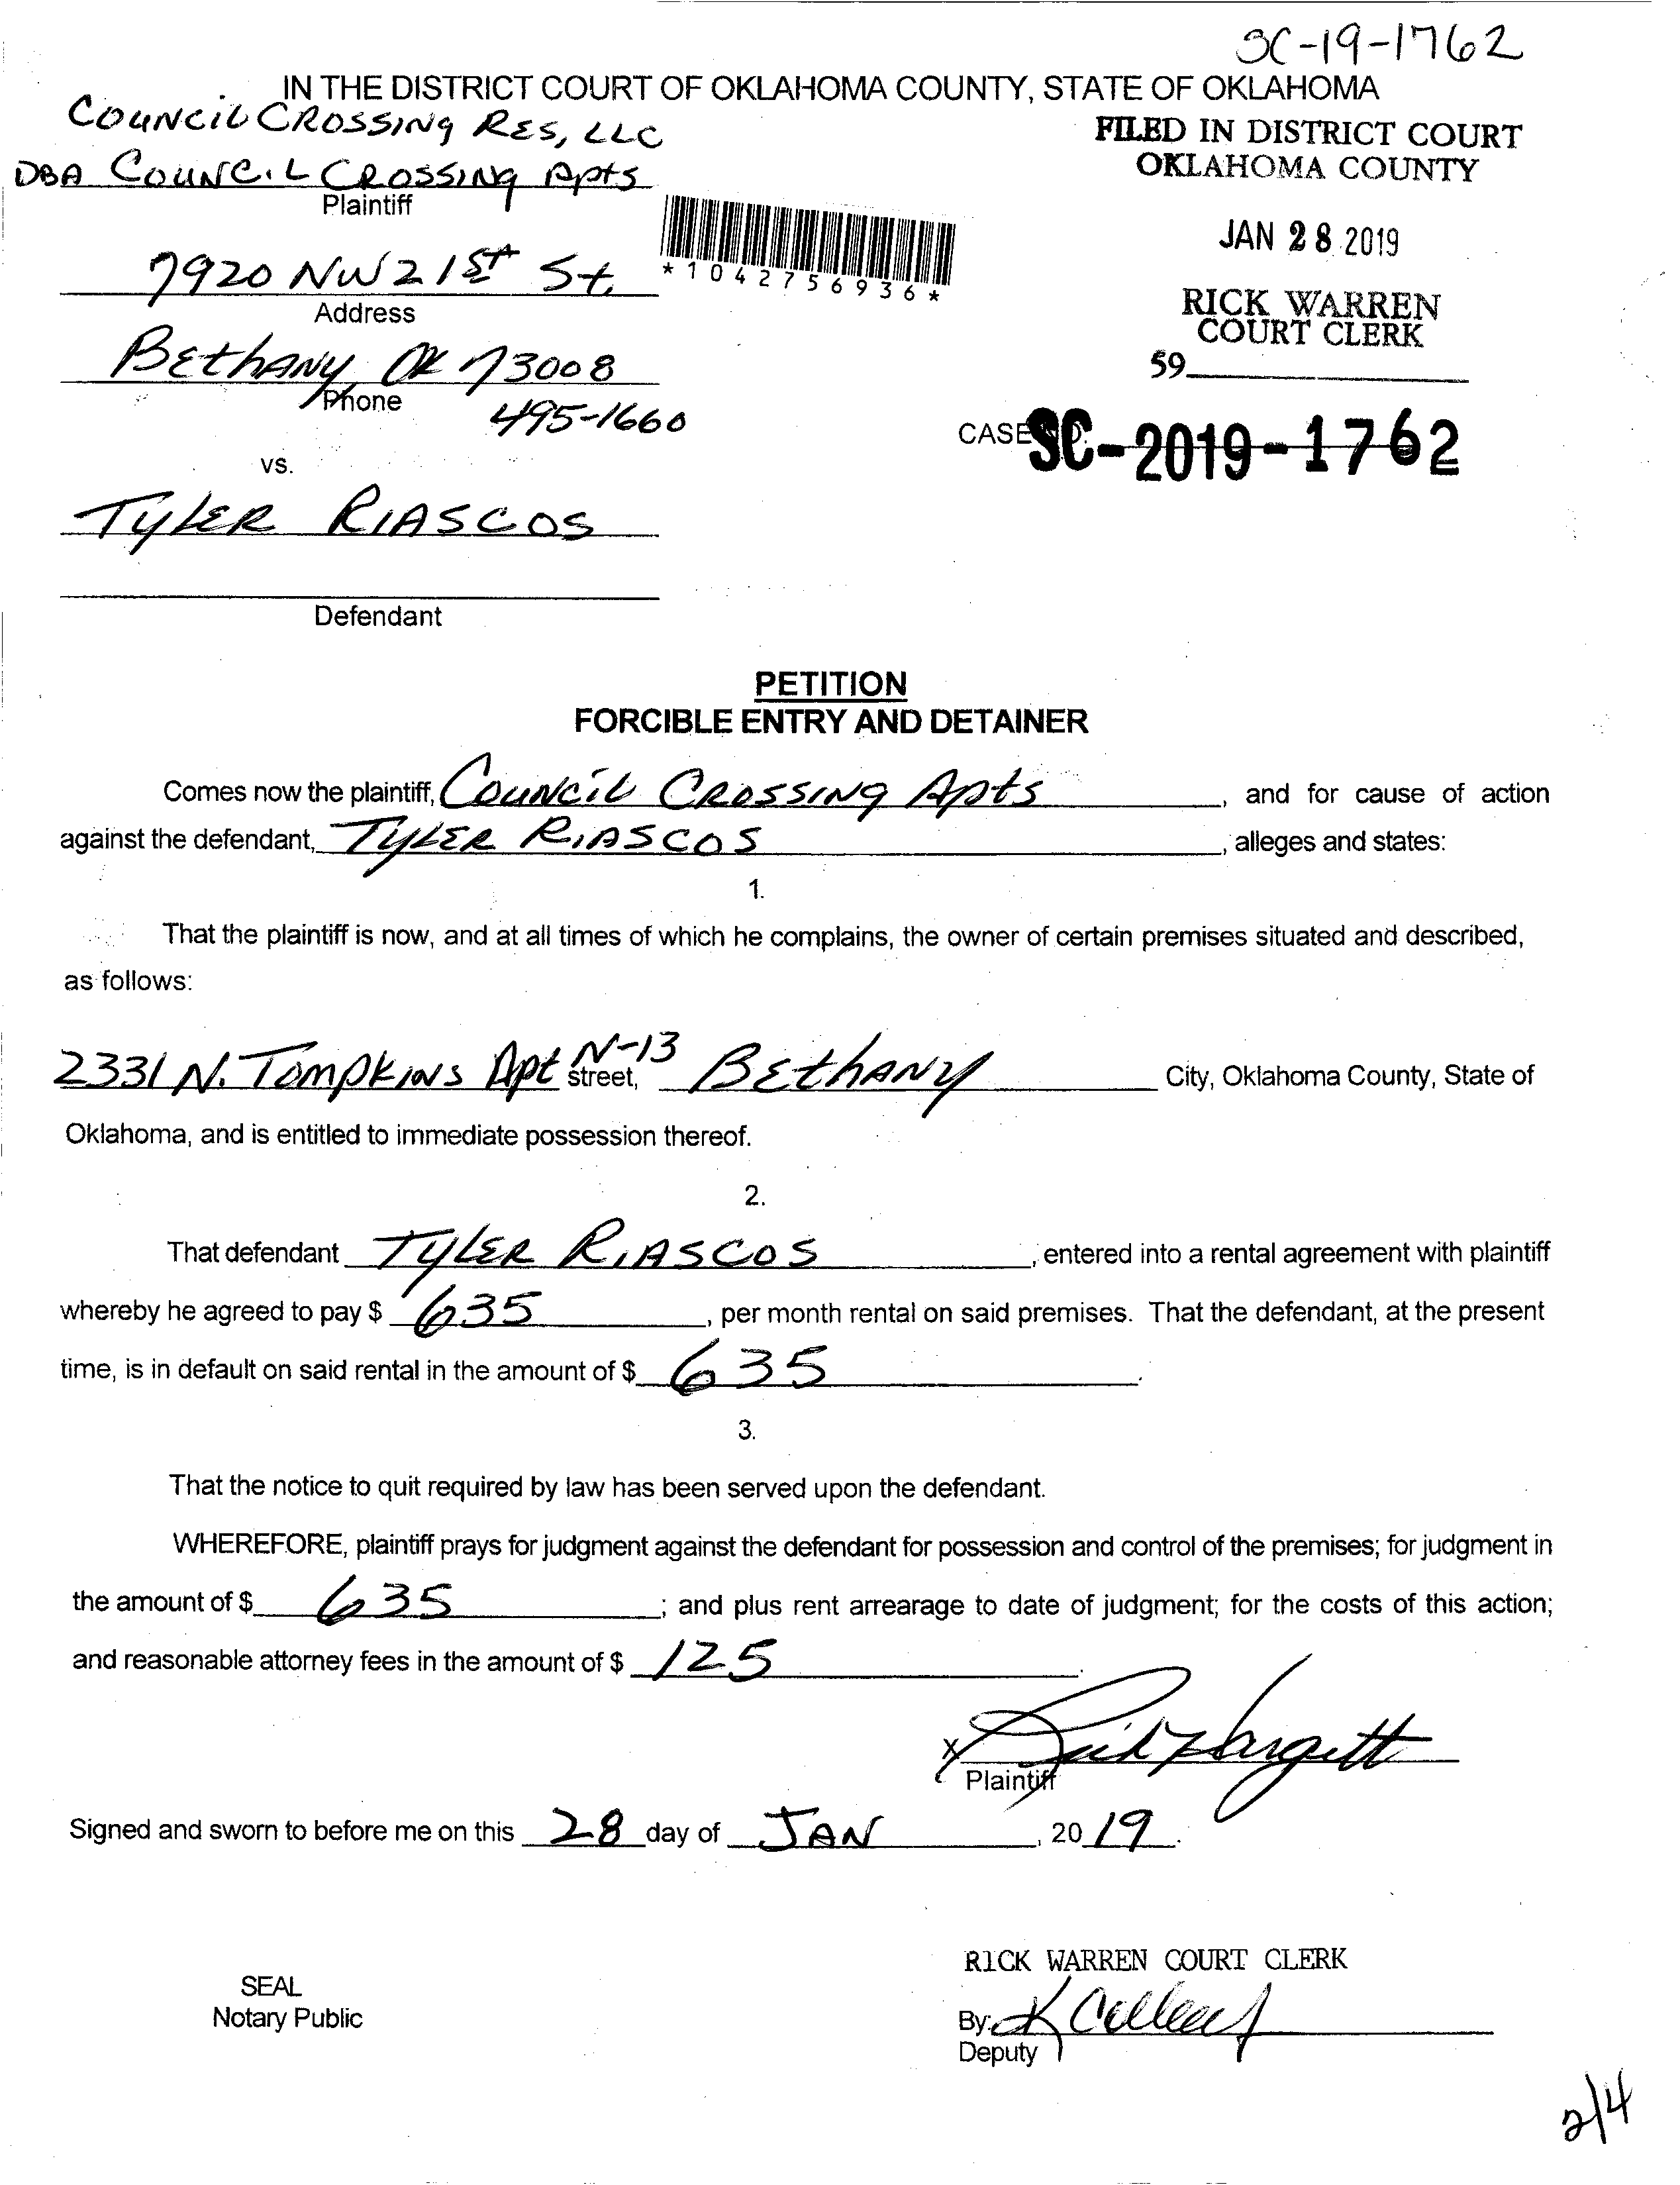 SC-19-1762
IN THE DISTRICT COURT OF OKLAHOMA COUNTY, STATE OF OKLAHOMA
COUNCIL CROSSING RES, LLC
DBA COUNCIL CROSSING Apts
Plaintiff
FILED IN DISTRICT COURT
OKLAHOMA COUNTY
JAN 28 2019
RICK WARREN
COURT CLERK
59
*1042756936*
7920 NW 21st St.
Address
Bethany, OK 73008
Phone
495-1660
CASE NO. SC-2019-1762
vs.
TYLER RIASCOS
Defendant
PETITION
FORCIBLE ENTRY AND DETAINER
Comes now the plaintiff, COUNCIL CROSSING Apts, and for cause of action
against the defendant, TYLER RIASCOS, alleges and states:
1.
That the plaintiff is now, and at all times of which he complains, the owner of certain premises situated and described,
as follows:
2331 N. TOMPKINS Apt N-13 street, BEthANY City, Oklahoma County, State of
Oklahoma, and is entitled to immediate possession thereof.
2.
That defendant TYLER RIASCOS, entered into a rental agreement with plaintiff
whereby he agreed to pay $ 635, per month rental on said premises. That the defendant, at the present
time, is in default on said rental in the amount of $ 635.
3.
That the notice to quit required by law has been served upon the defendant.
WHEREFORE, plaintiff prays for judgment against the defendant for possession and control of the premises; for judgment in
the amount of $ 635; and plus rent arrearage to date of judgment; for the costs of this action;
and reasonable attorney fees in the amount of $ 125.
X
Plaintiff
Signed and sworn to before me on this 28 day of JAN, 20 19.
RICK WARREN COURT CLERK
SEAL
Notary Public
By:
Deputy
2/4